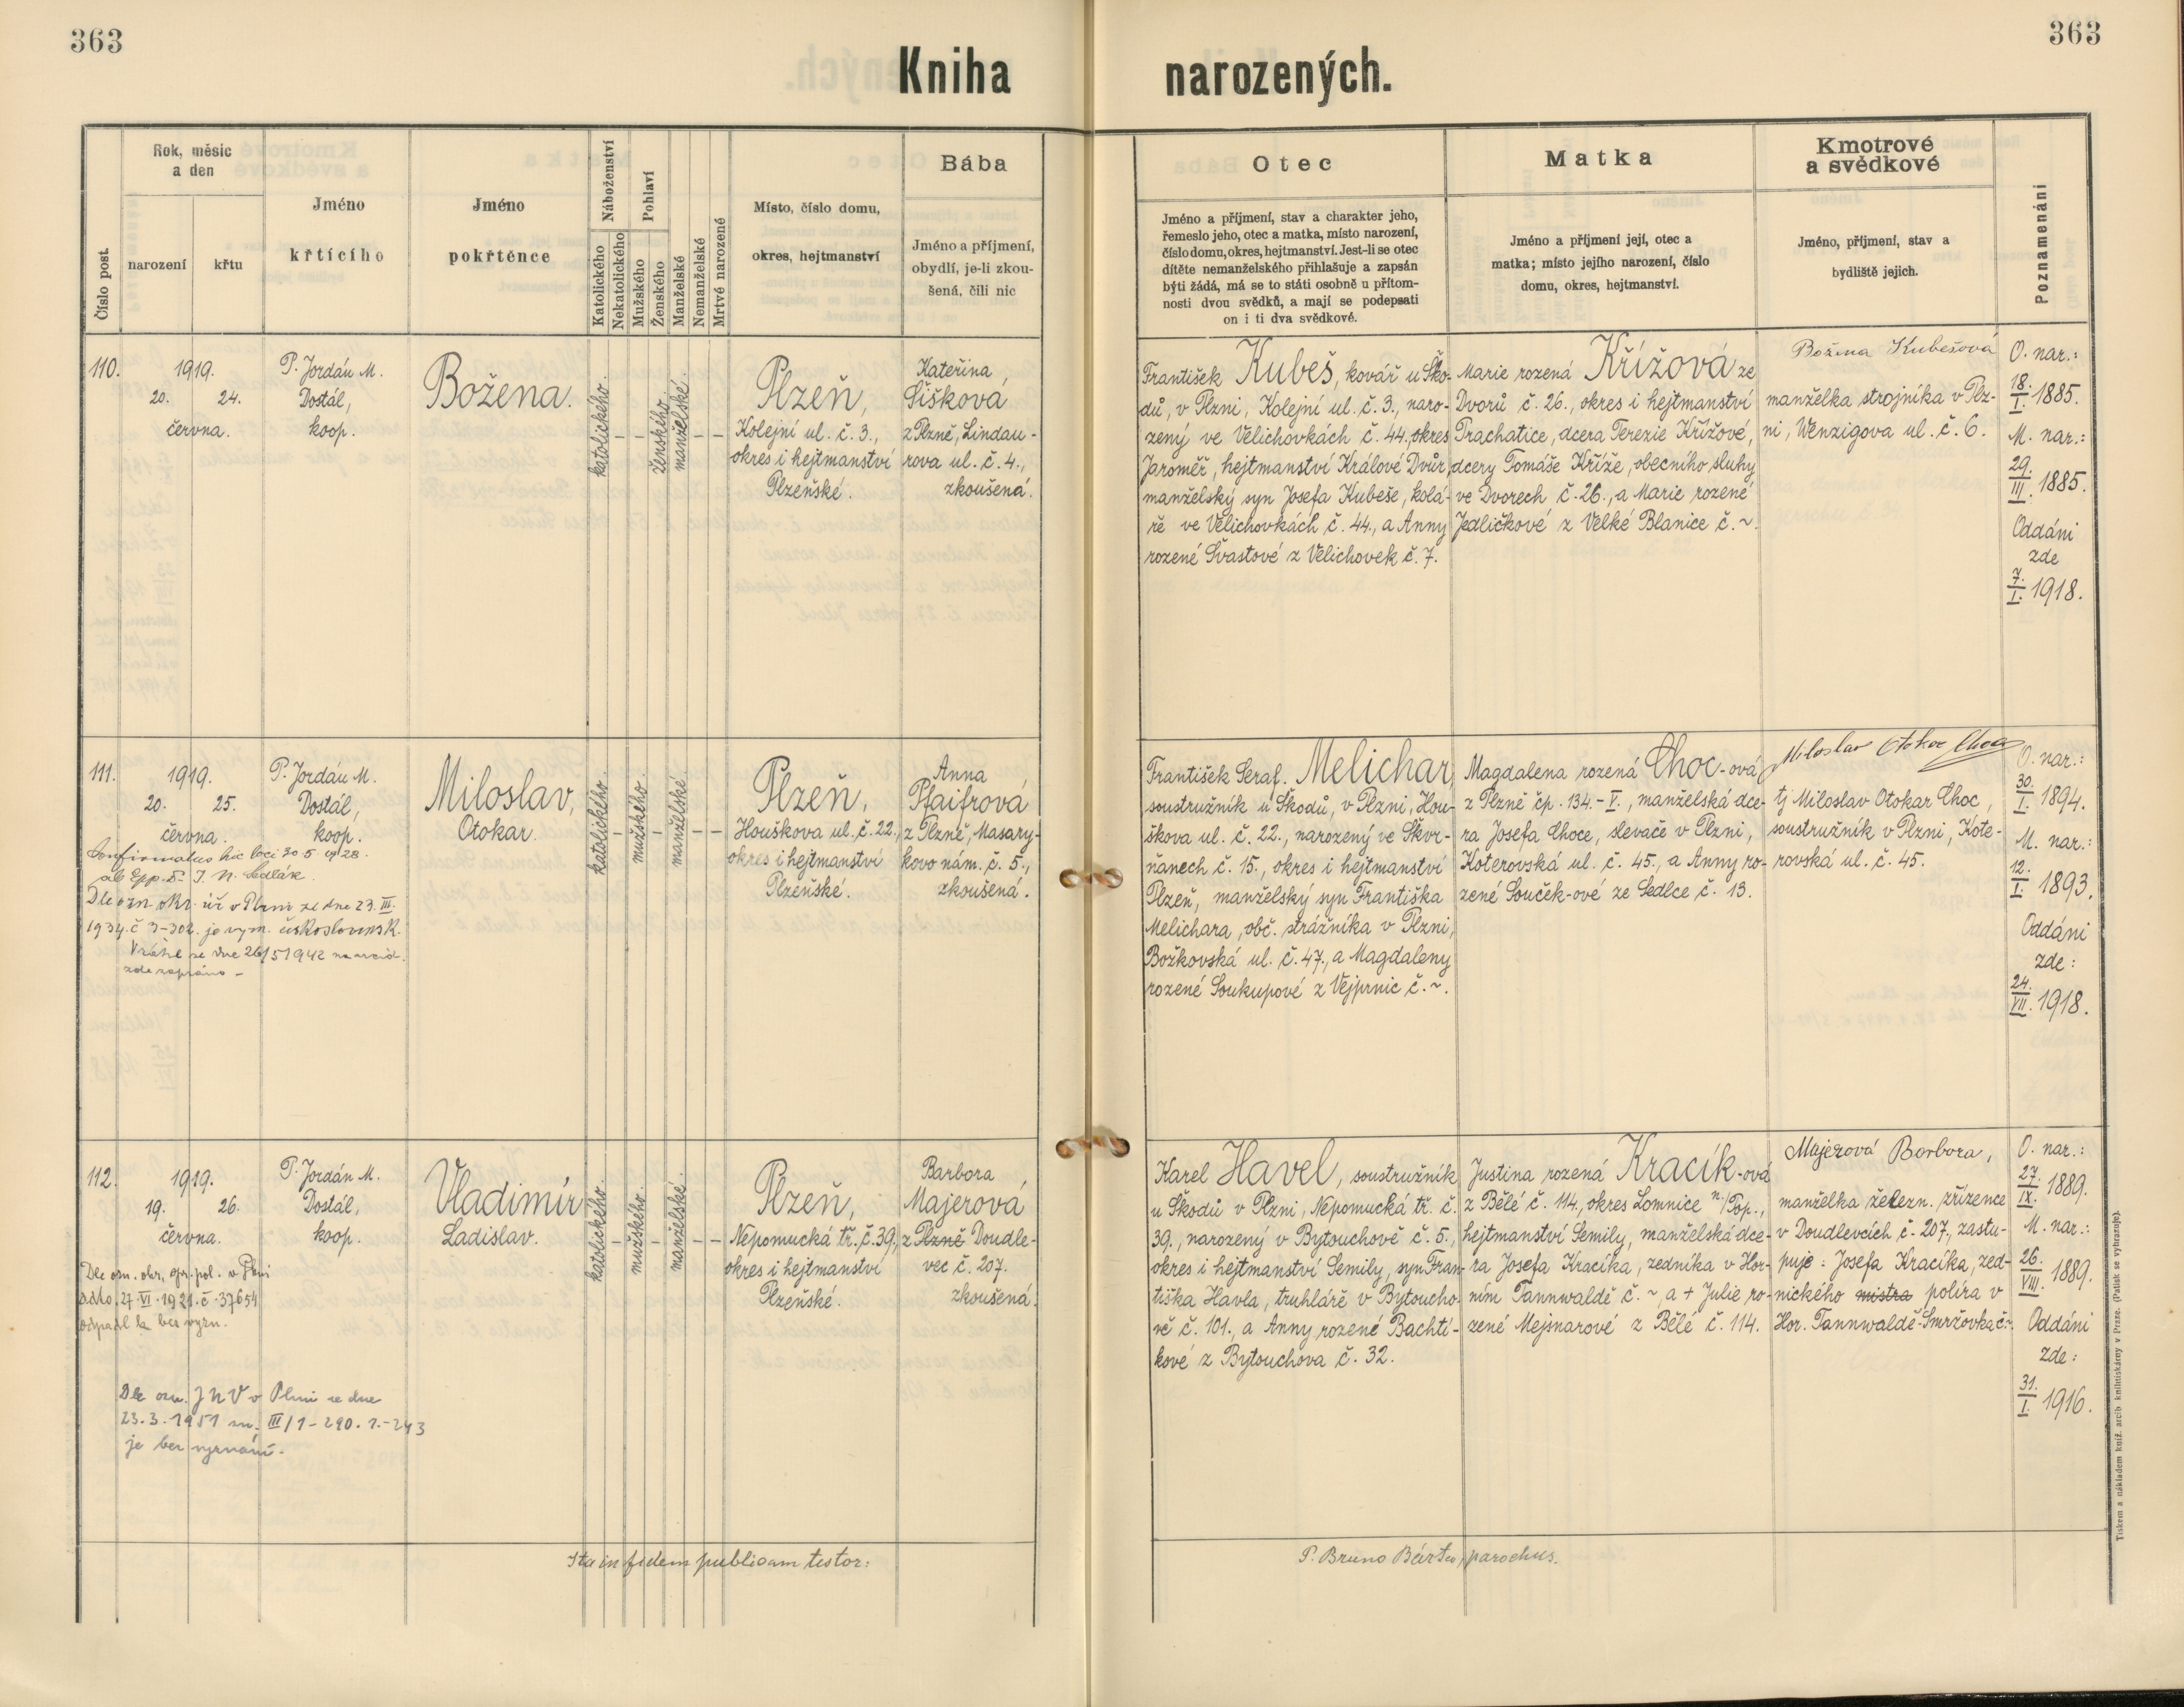 363
363
Kniha narozených.
Číslo post.
Rok, měsíc
a den
narození
křtu
Jméno
křtícího
Jméno
pokřtěnce
Náboženství
Katolického
Nekatolického
Pohlaví
Mužského
Ženského
Manželské
Nemanželské
Mrtvě narozené
Místo, číslo domu,
okres, hejtmanství
Bába
Jméno a příjmení,
obydlí, je-li zkou-
šená, čili nic
Otec
Jméno a příjmení, stav a charakter jeho,
řemeslo jeho, otec a matka, místo narození,
číslo domu, okres, hejtmanství. Jest-li se otec
dítěte nemanželského přihlašuje a zapsán
býti žádá, má se to státi osobně u přítom-
nosti dvou svědků, a mají se podepsati
on i ti dva svědkové.
Matka
Jméno a příjmení její, otec a
matka; místo jejího narození, číslo
domu, okres, hejtmanství.
Kmotrové
a svědkové
Jméno, příjmení, stav a
bydliště jejich.
Poznamenání
110.
1919.
20. 24.
června.
P. Jordán M.
Dostál,
koop.
Božena.
katolického.
–
–
ženského.
manželské.
–
–
Plzeň,
Kolejní ul. č. 3.,
okres i hejtmanství
Plzeňské.
Kateřina
Šišková
z Plzně, Lindau-
rova ul. č. 4.,
zkoušená.
František Kubeš, kovář u Ško-
dů, v Plzni, Kolejní ul. č. 3., naro-
zený ve Velichovkách č. 44., okres
Jaroměř, hejtmanství Králové Dvůr,
manželský syn Josefa Kubeše, kolá-
ře ve Velichovkách č. 44., a Anny
rozené Švastové z Velichovek č. 7.
Marie rozená Křížová ze
Dvorů č. 26., okres i hejtmanství
Prachatice, dcera Terezie Křížové,
dcery Tomáše Kříže, obecního sluhy
ve Dvorech č. 26., a Marie rozené
Jedličkové z Velké Blanice č. ~.
Božena Kubešová
manželka strojníka v Plz-
ni, Wenzigova ul. č. 6.
O. nar.:
18./I. 1885.
M. nar.:
29./III. 1885.
Oddáni
zde
7./I. 1918.
111.
1919.
20. 25.
června.
Confirmatus hic loci 30 5 1928.
ab Epp. S. J. N. Sedlák.
Dle ozn. okr. úř v Plzni ze dne 23. III.
1934. č 3-302. je vyzn. československ.
Vrátil se dne 26/5 1942
zde zapsáno –
P. Jordán M.
Dostál,
koop.
Miloslav,
Otokar.
katolického.
–
mužského.
–
manželské.
–
–
Plzeň,
Houškova ul. č. 22.,
okres i hejtmanství
Plzeňské.
Anna
Pfaifrová
z Plzně, Masary-
kovo nám. č. 5.,
zkoušená.
František Seraf. Melichar,
soustružník u Škodů, v Plzni, Hou-
škova ul. č. 22., narozený ve Škvr-
ňanech č. 15., okres i hejtmanství
Plzeň, manželský syn Františka
Melichara, obč. strážníka v Plzni,
Božkovská ul. č. 47., a Magdaleny
rozené Soukupové z Vejprnic č. ~.
Magdalena rozená Choc-ová
z Plzně čp. 134.–V., manželská dce-
ra Josefa Choce, slevače v Plzni,
Koterovská ul. č. 45., a Anny ro-
zené Souček-ové ze Sedlce č. 13.
Miloslav Otokar Choc
tj Miloslav Otokar Choc,
soustružník v Plzni, Kote-
rovská ul. č. 45.
O. nar.:
30./I. 1894.
M. nar.:
12./I. 1893.
Oddáni
zde:
24./VII. 1918.
112.
1919.
19. 26.
června.
Dle ozn. okr. spr. pol. v Plzni
ddto 27. VI. 1921. č. 37654
odpadl la bez vyzn.
Dle ozn. JNV v Plzni ze dne
23.3.1951 zn. III/1-290.1.-243
je bez vyznání.
P. Jordán M.
Dostál,
koop.
Vladimír
Ladislav.
katolického.
–
mužského.
–
manželské.
–
–
Plzeň,
Nepomucká tř. č. 39.,
okres i hejtmanství
Plzeňské.
Barbora
Majerová
z Plzně Doudle-
vec č. 207.
zkoušená.
Karel Havel, soustružník
u Škodů v Plzni, Nepomucká tř. č.
39., narozený v Bytouchově č. 5.,
okres i hejtmanství Semily, syn Fran-
tiška Havla, truhláře v Bytoucho-
vě č. 101., a Anny rozené Bachtí-
kové z Bytouchova č. 32.
Justina rozená Kracík-ová
z Bělé č. 114., okres Lomnice n./Pop.,
hejtmanství Semily, manželská dce-
ra Josefa Kracíka, zedníka v Hor-
ním Tannwaldě č. ~, a + Julie ro-
zené Mejsnarové z Bělé č. 114.
Majerová Barbora,
manželka železn. zřízence
v Doudlevcích č. 207., zastu-
puje: Josefa Kracíka, zed-
nického mistra políra v
Hor. Tannwaldě-Smržovka č. ~.
O. nar.:
27./IX. 1889.
M. nar.:
26./VIII. 1889.
Oddáni
zde:
31./I. 1916.
Ita in fidem publicam testor:
P. Bruno Bárta, parochus.
Tiskem a nákladem kníž. arcib. knihtiskárny v Praze. (Patisk se vyhrazuje).